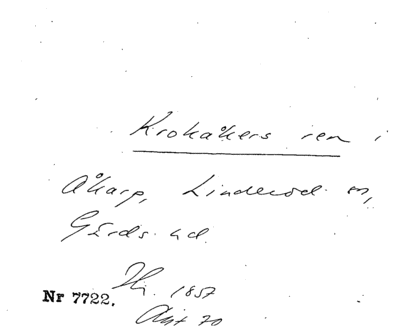 Krokåkers ren i
Åkarp, Linderöd sn,
Gärds hd.
Hj. 1857
Nr 7722.
Akt 70